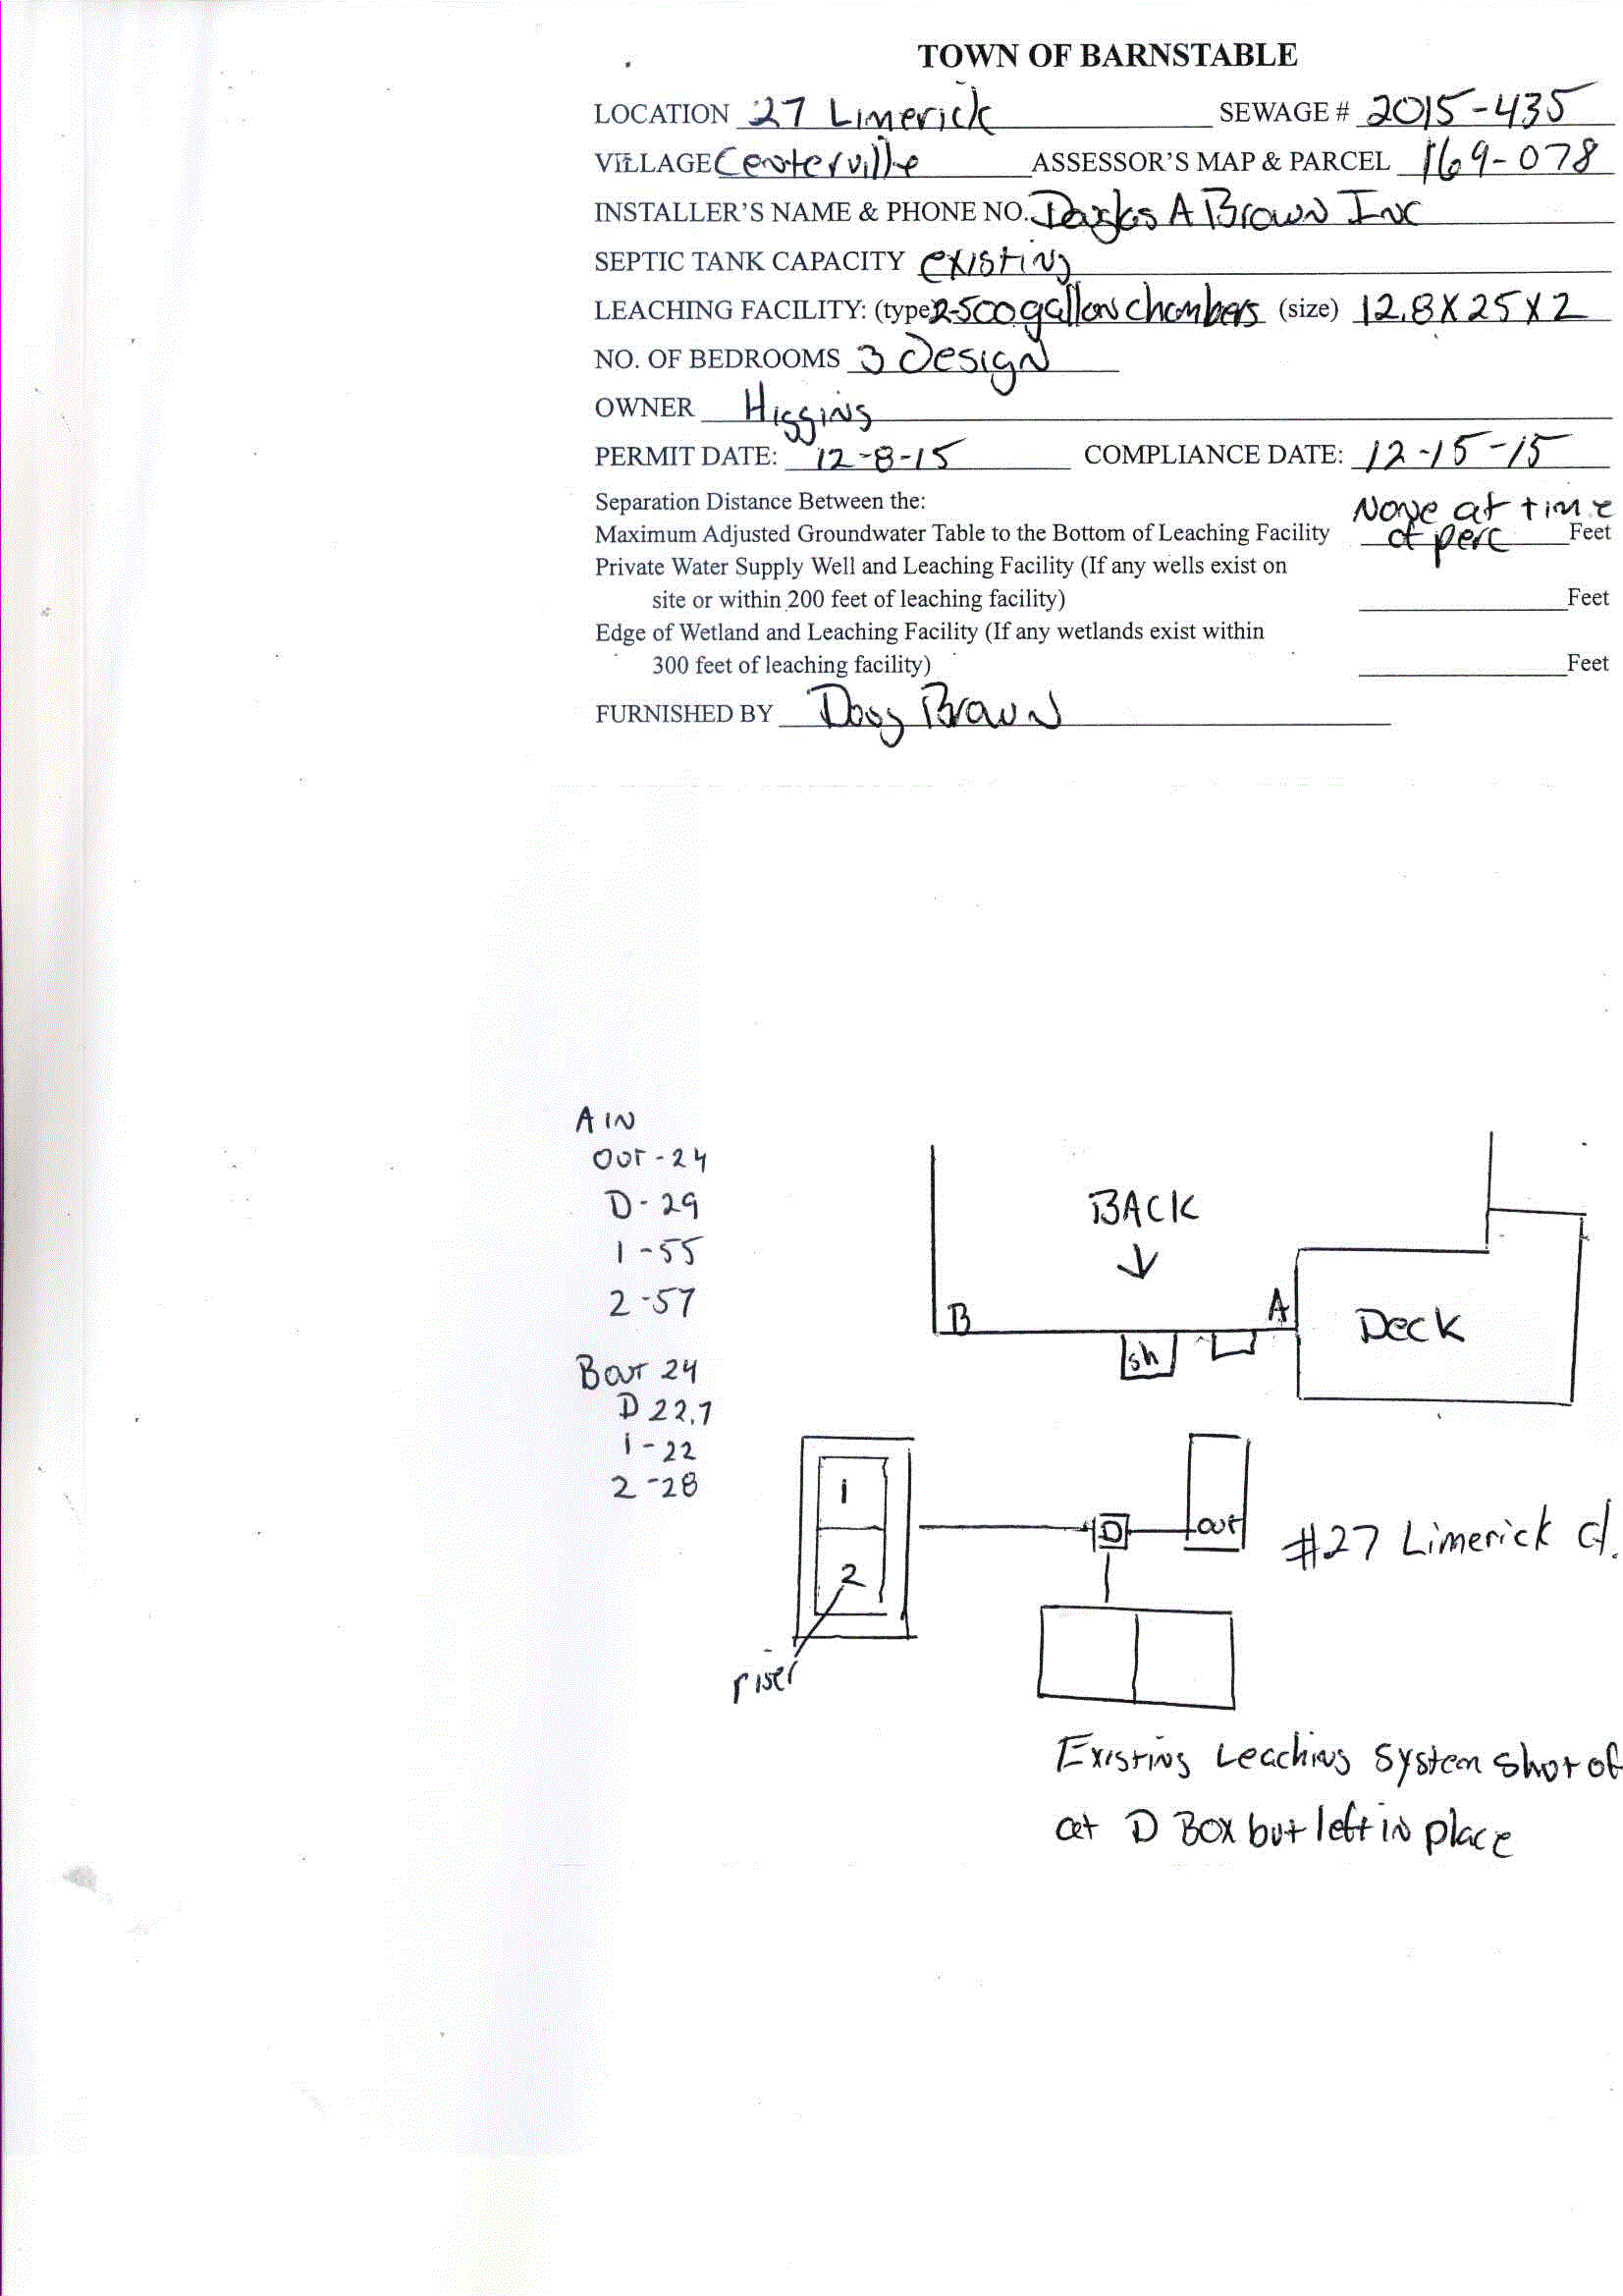 TOWN OF BARNSTABLE
LOCATION 27 Limerick SEWAGE # 2015-435
VILLAGE Centerville ASSESSOR'S MAP & PARCEL 169-078
INSTALLER'S NAME & PHONE NO. Douglas A Brown Inc
SEPTIC TANK CAPACITY existing
LEACHING FACILITY: (type) 2-500 gallon chambers (size) 12.8 X 25 X 2
NO. OF BEDROOMS 3 Design
OWNER Higgins
PERMIT DATE: 12-8-15 COMPLIANCE DATE: 12-15-15
Separation Distance Between the:
Maximum Adjusted Groundwater Table to the Bottom of Leaching Facility None at time of perc Feet
Private Water Supply Well and Leaching Facility (If any wells exist on
site or within 200 feet of leaching facility) Feet
Edge of Wetland and Leaching Facility (If any wetlands exist within
300 feet of leaching facility) Feet
FURNISHED BY Doug Brown
A IN
OUT - 24
D - 29
1 - 55
2 - 57
B out 24
D 22.7
1 - 22
2 - 28
BACK
B
A
Deck
sh
1
2
D
out
#27 Limerick ct.
riser
Existing Leaching System shot of
at D Box but left in place